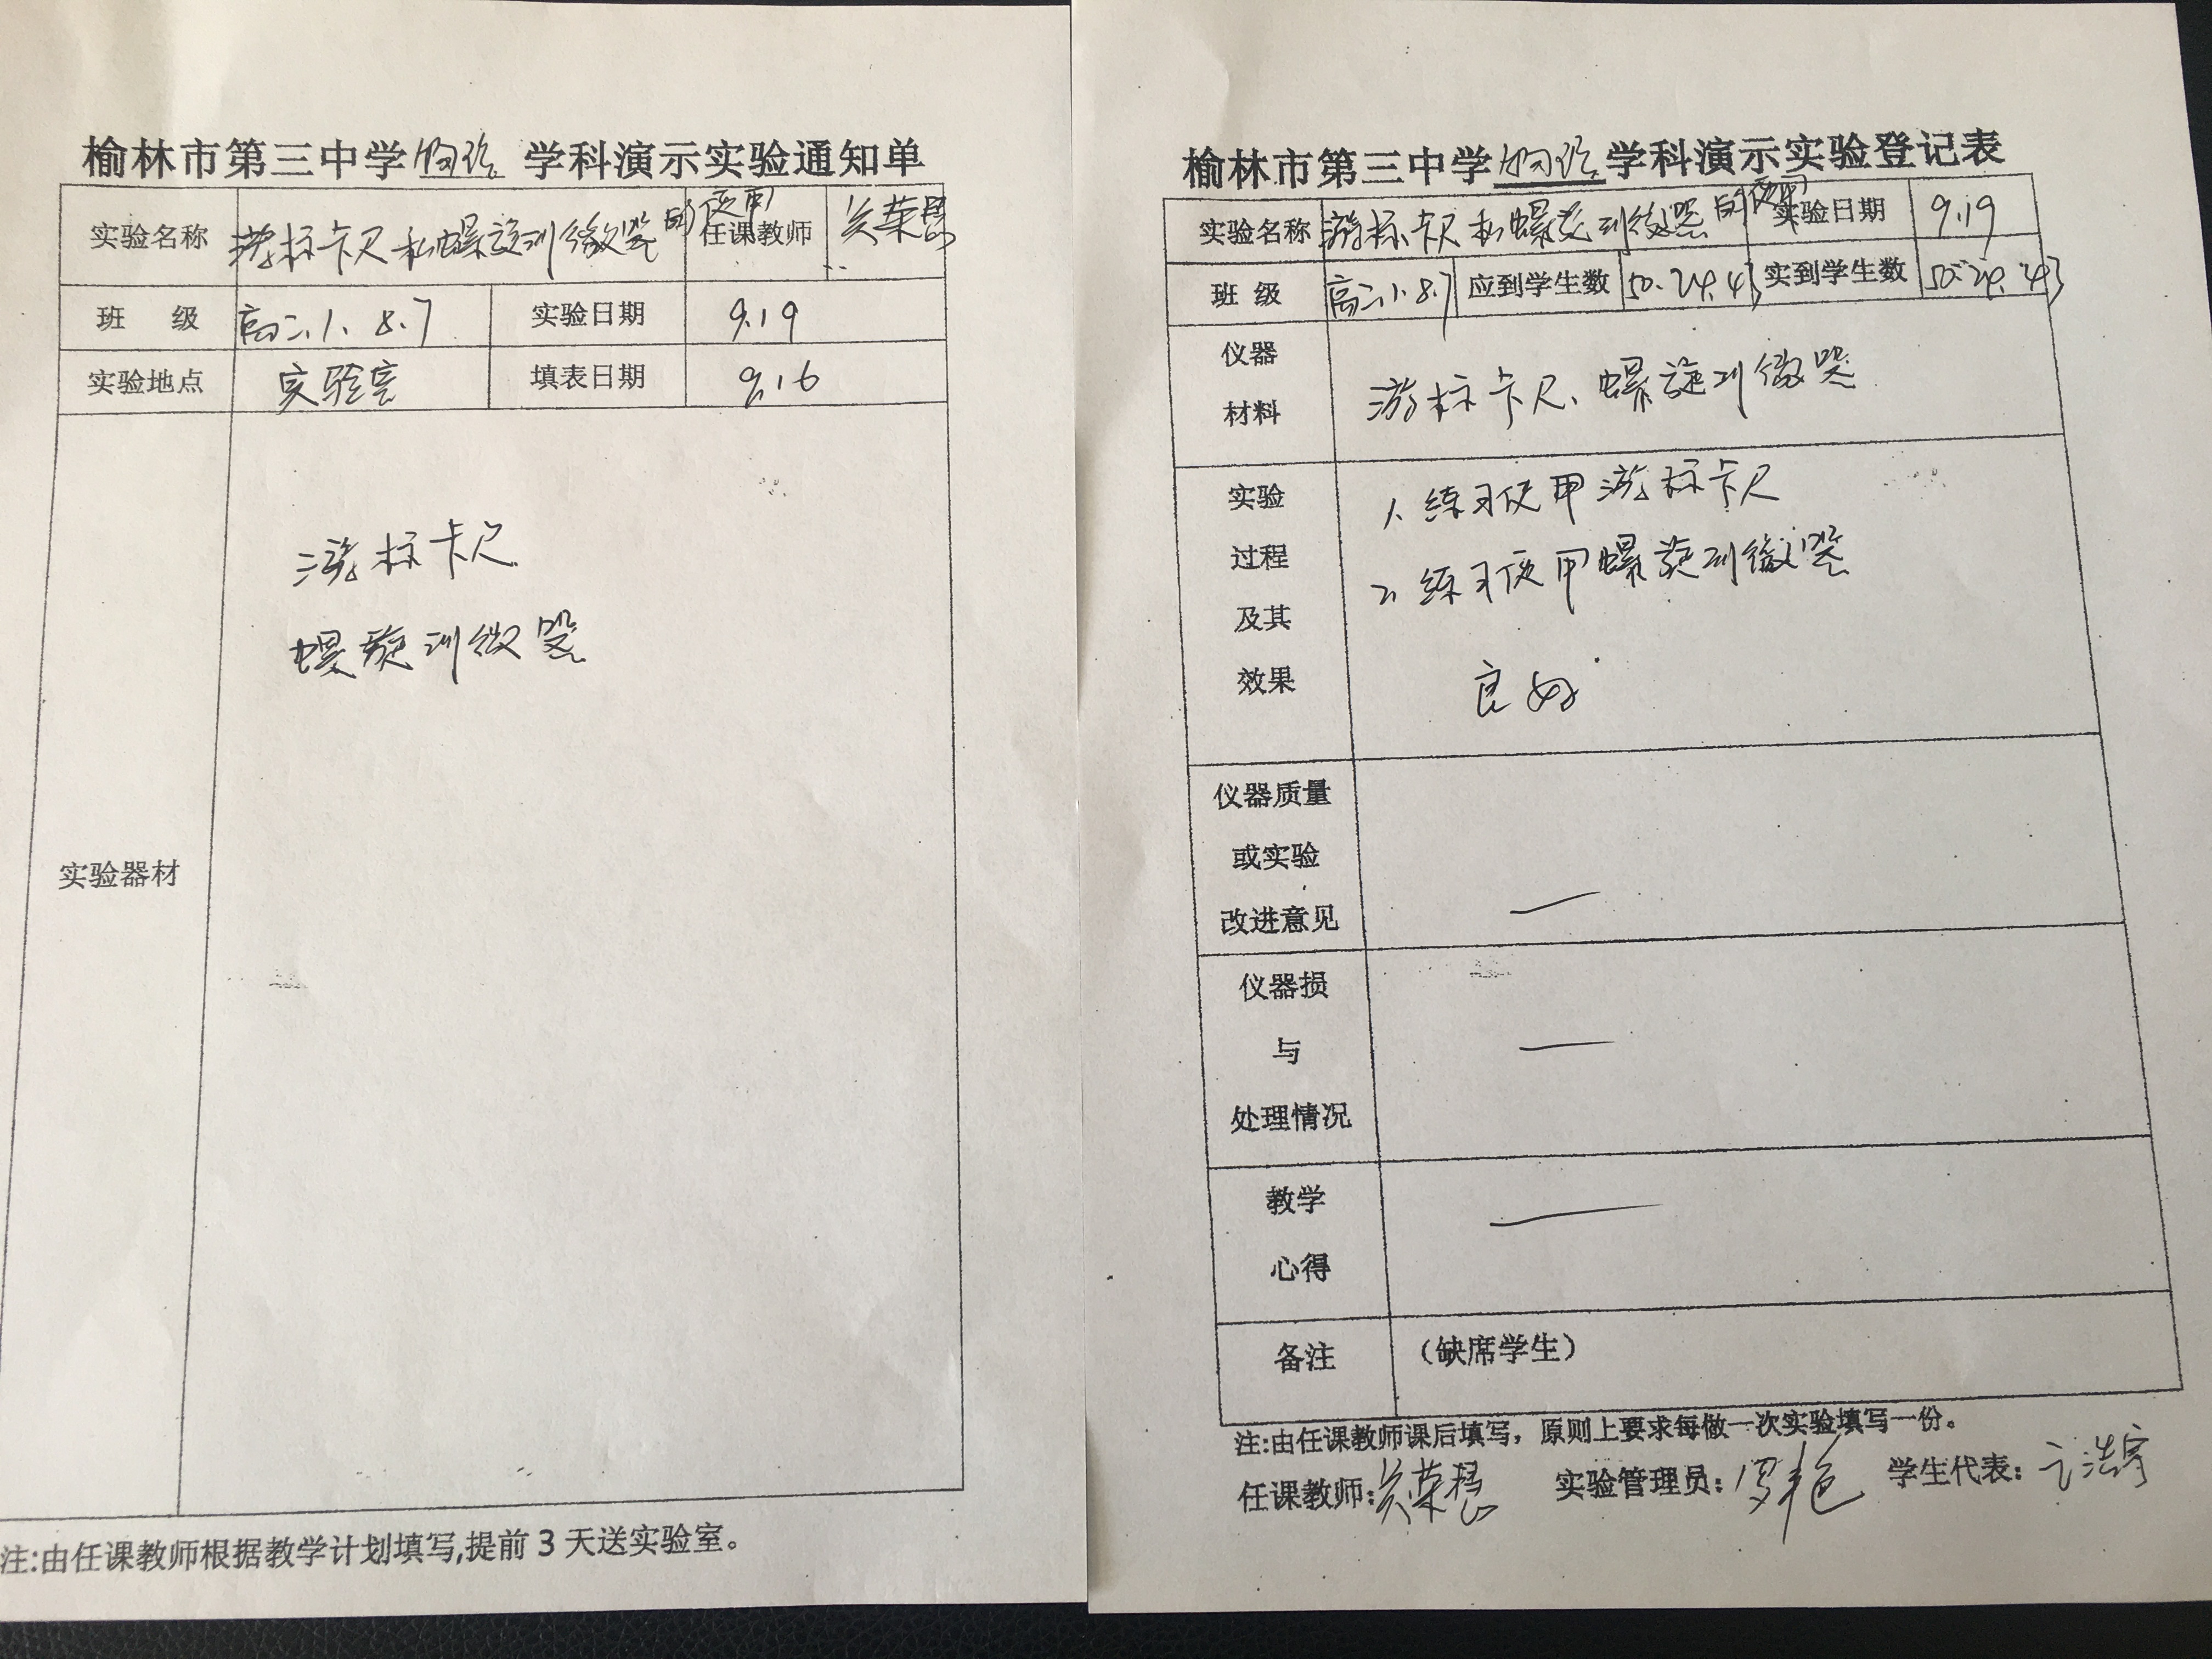 榆林市第三中学物理学科演示实验通知单
实验名称 游标卡尺和螺旋测微器的使用 任课教师 吴荣慧
班 级 高二.1.8.7 实验日期 9.19
实验地点 实验室 填表日期 9.16
实验器材
游标卡尺
螺旋测微器
注:由任课教师根据教学计划填写,提前3天送实验室。
榆林市第三中学物理学科演示实验登记表
实验名称 游标卡尺和螺旋测微器的使用 实验日期 9.19
班 级 高二.1.8.7 应到学生数 50.24.43 实到学生数 50.24.43
仪器
材料
游标卡尺、螺旋测微器
实验
过程
及其
效果
1.练习使用游标卡尺
2.练习使用螺旋测微器
良好
仪器质量
或实验
改进意见
—
仪器损
与
处理情况
—
教学
心得
—
备注 （缺席学生）
注:由任课教师课后填写，原则上要求每做一次实验填写一份。
任课教师:吴荣慧 实验管理员:罗艳 学生代表: 浩宇